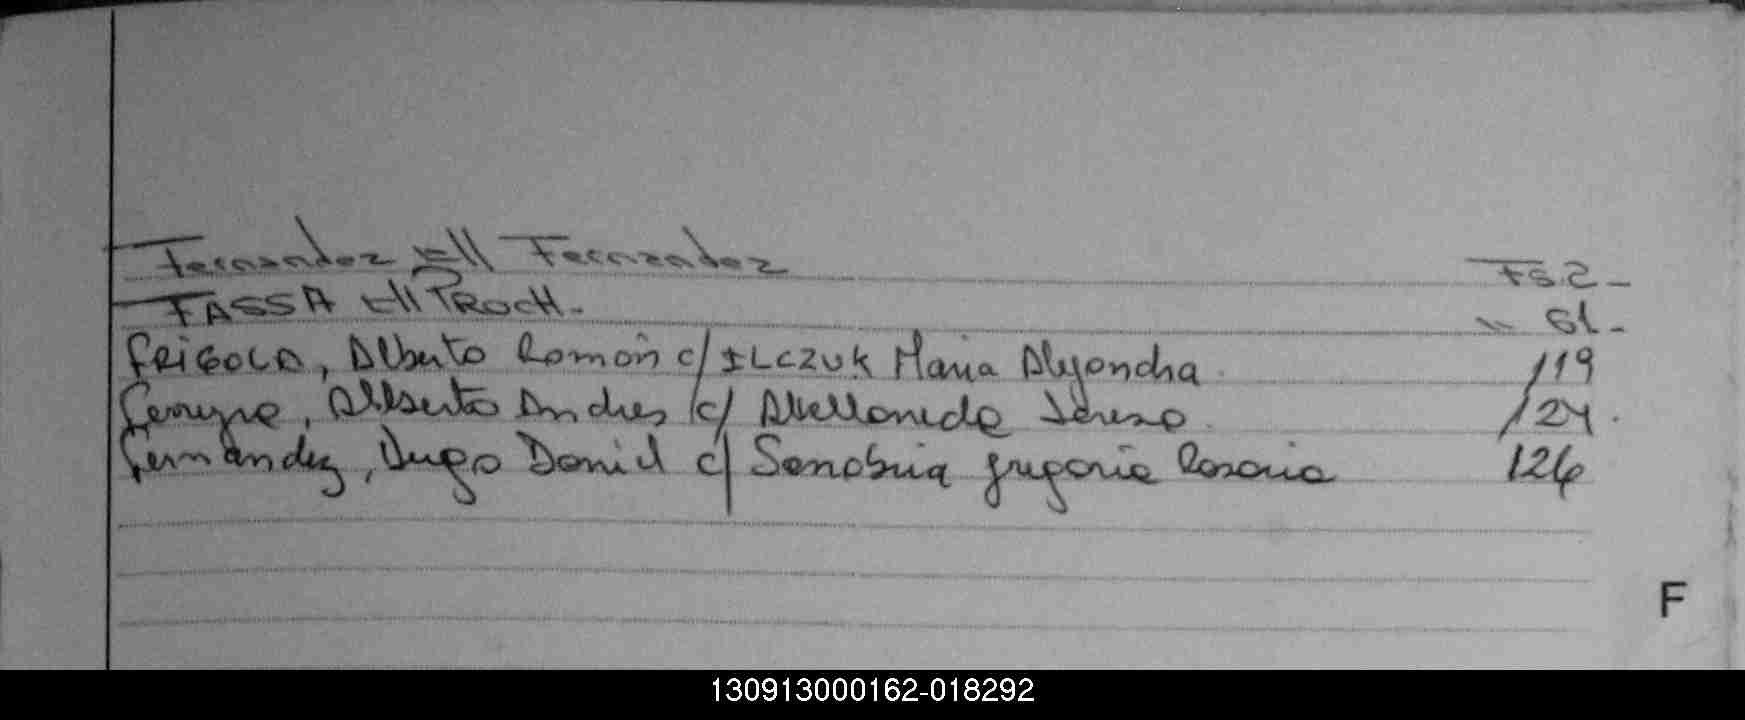 Fernandez c/ Fernandez FS 2-
FASSA c/ PROCH. " 61-
FRIGOLA, Alberto Ramón c/ ILCZUK Maria Alejandra 119
Ferreyra, Alberto Andres c/ Avellaneda Teresa 124.
Fernández, Hugo Daniel c/ Sanabria Gregoria Rosaria 126
F
130913000162-018292